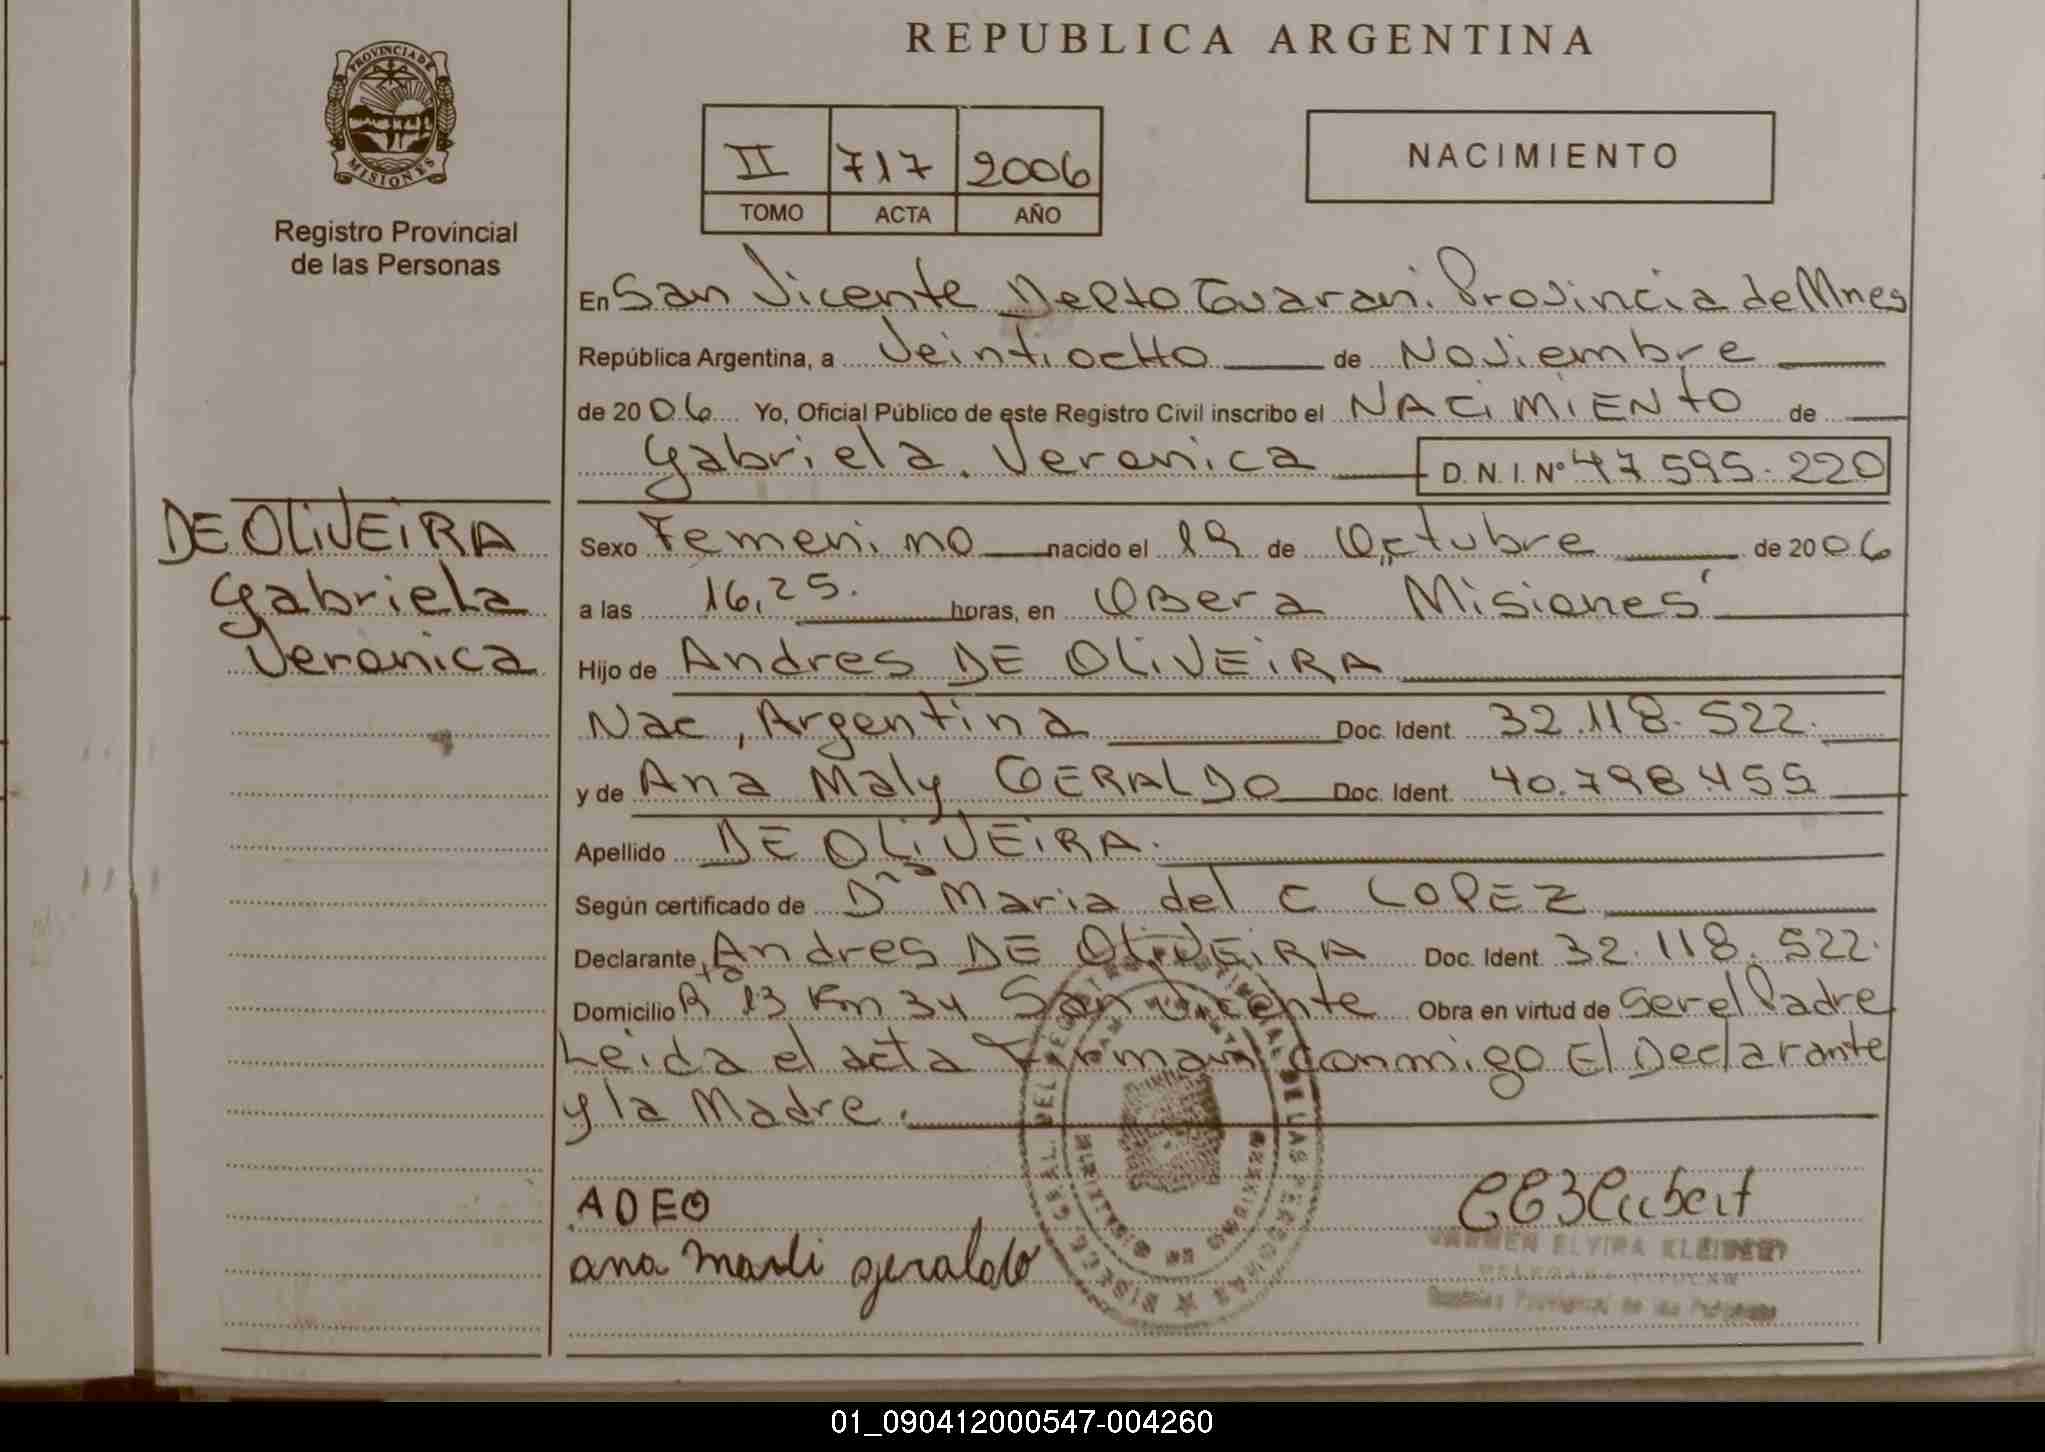 REPUBLICA ARGENTINA
PROVINCIA DE
MISIONES
Registro Provincial
de las Personas
II 717 2006
TOMO ACTA AÑO
NACIMIENTO
En San Vicente Depto Guarani. Provincia de Mnes
República Argentina, a Veintiocho de Noviembre
de 2006 Yo, Oficial Público de este Registro Civil inscribo el NACIMIENTO de
Gabriela. Veronica D. N. I. Nº 47 595. 220
DE OLIVEIRA
Gabriela
Veronica
Sexo Femenino nacido el 19 de Octubre de 2006
a las 16,25. horas, en Obera Misiones
Hijo de Andres DE OLIVEIRA
Nac, Argentina Doc. Ident. 32.118.522.
y de Ana Maly GERALDO Doc. Ident. 40.798.455
Apellido DE OLIVEIRA.
Según certificado de Dra Maria del C LOPEZ
Declarante, Andres DE OLIVEIRA Doc. Ident. 32.118.522.
Domicilio Rta 13 Km 34 San Vicente Obra en virtud de Ser el Padre
Leida el acta Firman conmigo El Declarante
y la Madre.
ADEO
ana marli geraldo
ELVIRA
01_090412000547-004260